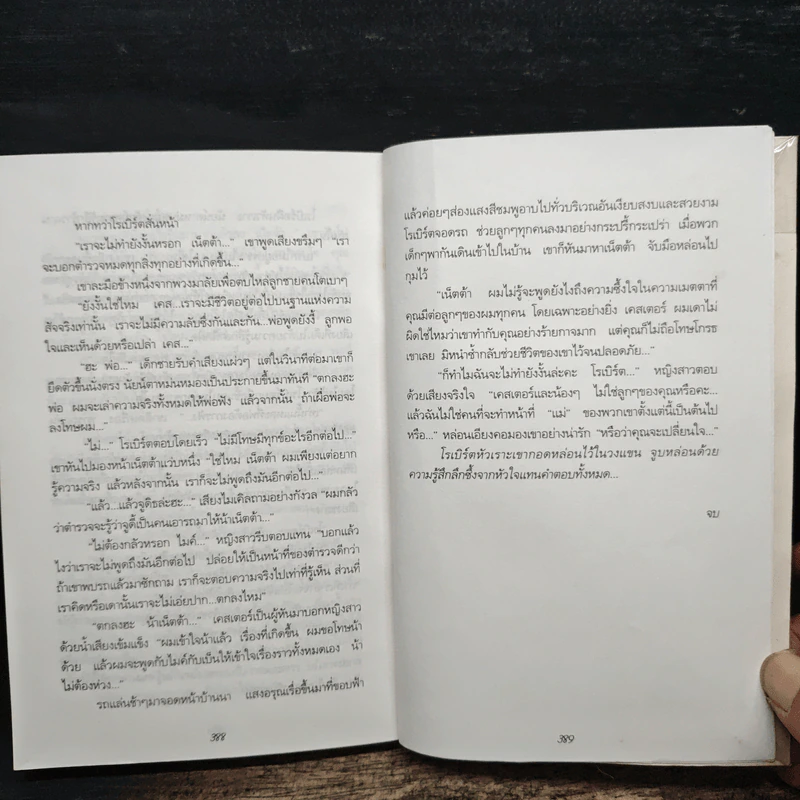 หากทว่าโรเบิร์ตสั่นหน้า
“เราจะไม่ทำยังงั้นหรอก เน็ตต้า...” เขาพูดเสียงขรึมๆ “เรา
จะบอกตำรวจหมดทุกสิ่งทุกอย่างที่เกิดขึ้น...”
เขาละมือข้างหนึ่งจากพวงมาลัยเพื่อตบไหล่ลูกชายคนโตเบาๆ
“ยังงั้นใช่ไหม เคส...เราจะมีชีวิตอยู่ต่อไปบนฐานแห่งความ
สัจจริงเท่านั้น เราจะไม่มีความลับซึ่งกันและกัน...พ่อพูดยังงี้ ลูกพอ
ใจและเห็นด้วยหรือเปล่า เคส...”
“ฮะ พ่อ...” เด็กชายรับคำเสียงแผ่วๆ แต่ในวินาทีต่อมาเขาก็
ยืดตัวขึ้นนั่งตรง นัยน์ตาหม่นหมองเป็นประกายขึ้นมาทันที “ตกลงฮะ
พ่อ ผมจะเล่าความจริงทั้งหมดให้พ่อฟัง แล้วจากนั้น ถ้าเผื่อพ่อจะ
ลงโทษผม...”
“ไม่...” โรเบิร์ตตอบโดยเร็ว “ไม่มีโทษมีทุกข์อะไรอีกต่อไป...”
เขาหันไปมองหน้าเน็ตต้าแว่บหนึ่ง “ใช่ไหม เน็ตต้า ผมเพียงแต่อยาก
รู้ความจริง แล้วหลังจากนั้น เราก็จะไม่พูดถึงมันอีกต่อไป...”
“แล้ว...แล้วจูดิธล่ะฮะ...” เสียงไมเคิลถามอย่างกังวล “ผมกลัว
ว่าตำรวจจะรู้ว่าจูดี้เป็นคนเอารถมาให้น้าเน็ตต้า...”
“ไม่ต้องกลัวหรอก ไมค์...” หญิงสาวรีบตอบแทน “บอกแล้ว
ไงว่าเราจะไม่พูดถึงมันอีกต่อไป ปล่อยให้เป็นหน้าที่ของตำรวจดีกว่า
ถ้าเขาพบรถแล้วมาซักถาม เราก็จะตอบความจริงไปเท่าที่รู้เห็น ส่วนที่
เราคิดหรือเดานั้นเราจะไม่เอ่ยปาก...ตกลงไหม”
“ตกลงฮะ น้าเน็ตต้า...” เคสเตอร์เป็นผู้หันมาบอกหญิงสาว
ด้วยน้ำเสียงเข้มแข็ง “ผมเข้าใจน้าแล้ว เรื่องที่เกิดขึ้น ผมขอโทษน้า
ด้วย แล้วผมจะพูดกับไมค์กับเป็นให้เข้าใจเรื่องราวทั้งหมดเอง น้า
ไม่ต้องห่วง...”
รถแล่นช้าๆมาจอดหน้าบ้านนา แสงอรุณเรื่อขึ้นมาที่ขอบฟ้า
388
แล้วค่อยๆส่องแสงสีชมพูอาบไปทั่วบริเวณอันเงียบสงบและสวยงาม
โรเบิร์ตจอดรถ ช่วยลูกๆทุกคนลงมาอย่างกระปรี้กระเปร่า เมื่อพวก
เด็กๆพากันเดินเข้าไปในบ้าน เขาก็หันมาหาเน็ตต้า จับมือหล่อนไป
กุมไว้
“เน็ตต้า ผมไม่รู้จะพูดยังไงถึงความซึ้งใจในความเมตตาที่
คุณมีต่อลูกๆของผมทุกคน โดยเฉพาะอย่างยิ่ง เคสเตอร์ ผมเดาไม่
ผิดใช่ไหมว่าเขาทำกับคุณอย่างร้ายกาจมาก แต่คุณก็ไม่ถือโทษโกรธ
เขาเลย มีหนำซ้ำกลับช่วยชีวิตของเขาไว้จนปลอดภัย...”
“ก็ทำไมฉันจะไม่ทำยังงั้นล่ะคะ โรเบิร์ต...” หญิงสาวตอบ
ด้วยเสียงจริงใจ “เคสเตอร์และน้องๆ ไม่ใช่ลูกๆของคุณหรือคะ...
แล้วฉันไม่ใช่คนที่จะทำหน้าที่ “แม่” ของพวกเขาตั้งแต่นี้เป็นต้นไป
หรือ...” หล่อนเอียงคอมองเขาอย่างน่ารัก “หรือว่าคุณจะเปลี่ยนใจ...”
โรเบิร์ตหัวเราะเขากอดหล่อนไว้ในวงแขน จูบหล่อนด้วย
ความรู้สึกลึกซึ้งจากหัวใจแทนคำตอบทั้งหมด...
จบ
389